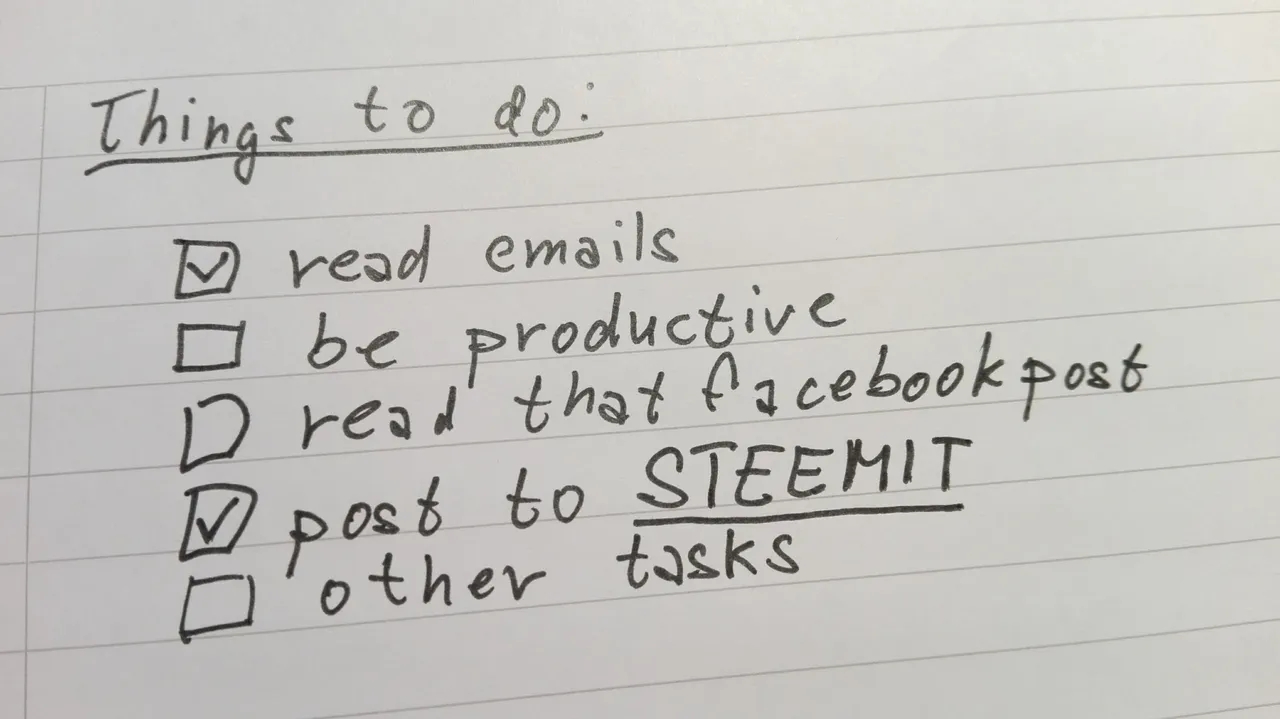 Things to do:
☑ read emails
☐ be productive
☐ read that facebookpost
☑ post to STEEMIT
☐ other tasks